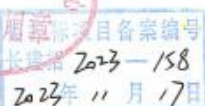 标项目备案编号
2023-158
2023年11月17日